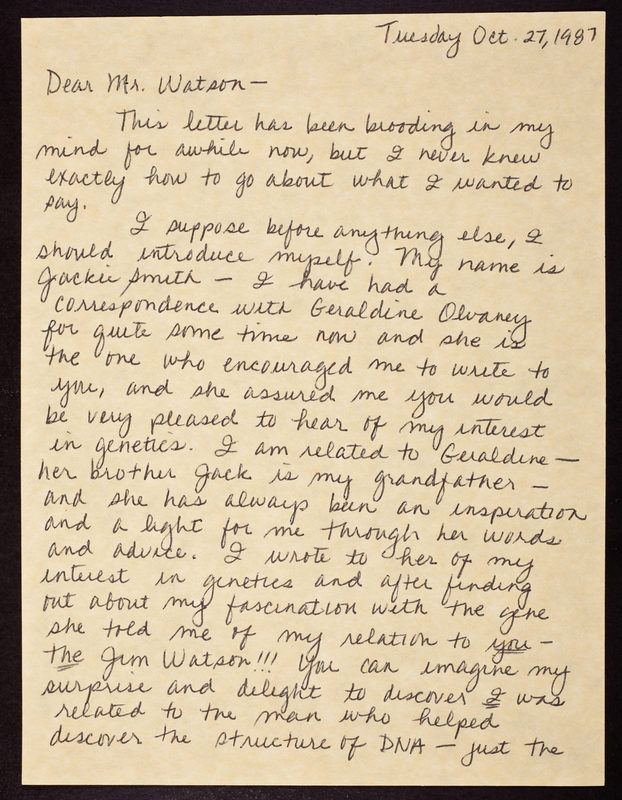 Tuesday Oct. 27, 1987
Dear Mr. Watson—
This letter has been brooding in my
mind for awhile now, but I never knew
exactly how to go about what I wanted to
say.
I suppose before anything else, I
should introduce myself. My name is
Jackie Smith — I have had a
correspondence with Geraldine Olvaney
for quite some time now and she is
the one who encouraged me to write to
you, and she assured me you would
be very pleased to hear of my interest
in genetics. I am related to Geraldine—
her brother Jack is my grandfather —
and she has always been an inspiration
and a light for me through her words
and advice. I wrote to her of my
interest in genetics and after finding
out about my fascination with the gene
she told me of my relation to you —
the Jim Watson!!! You can imagine my
surprise and delight to discover I was
related to the man who helped
discover the structure of DNA — just the